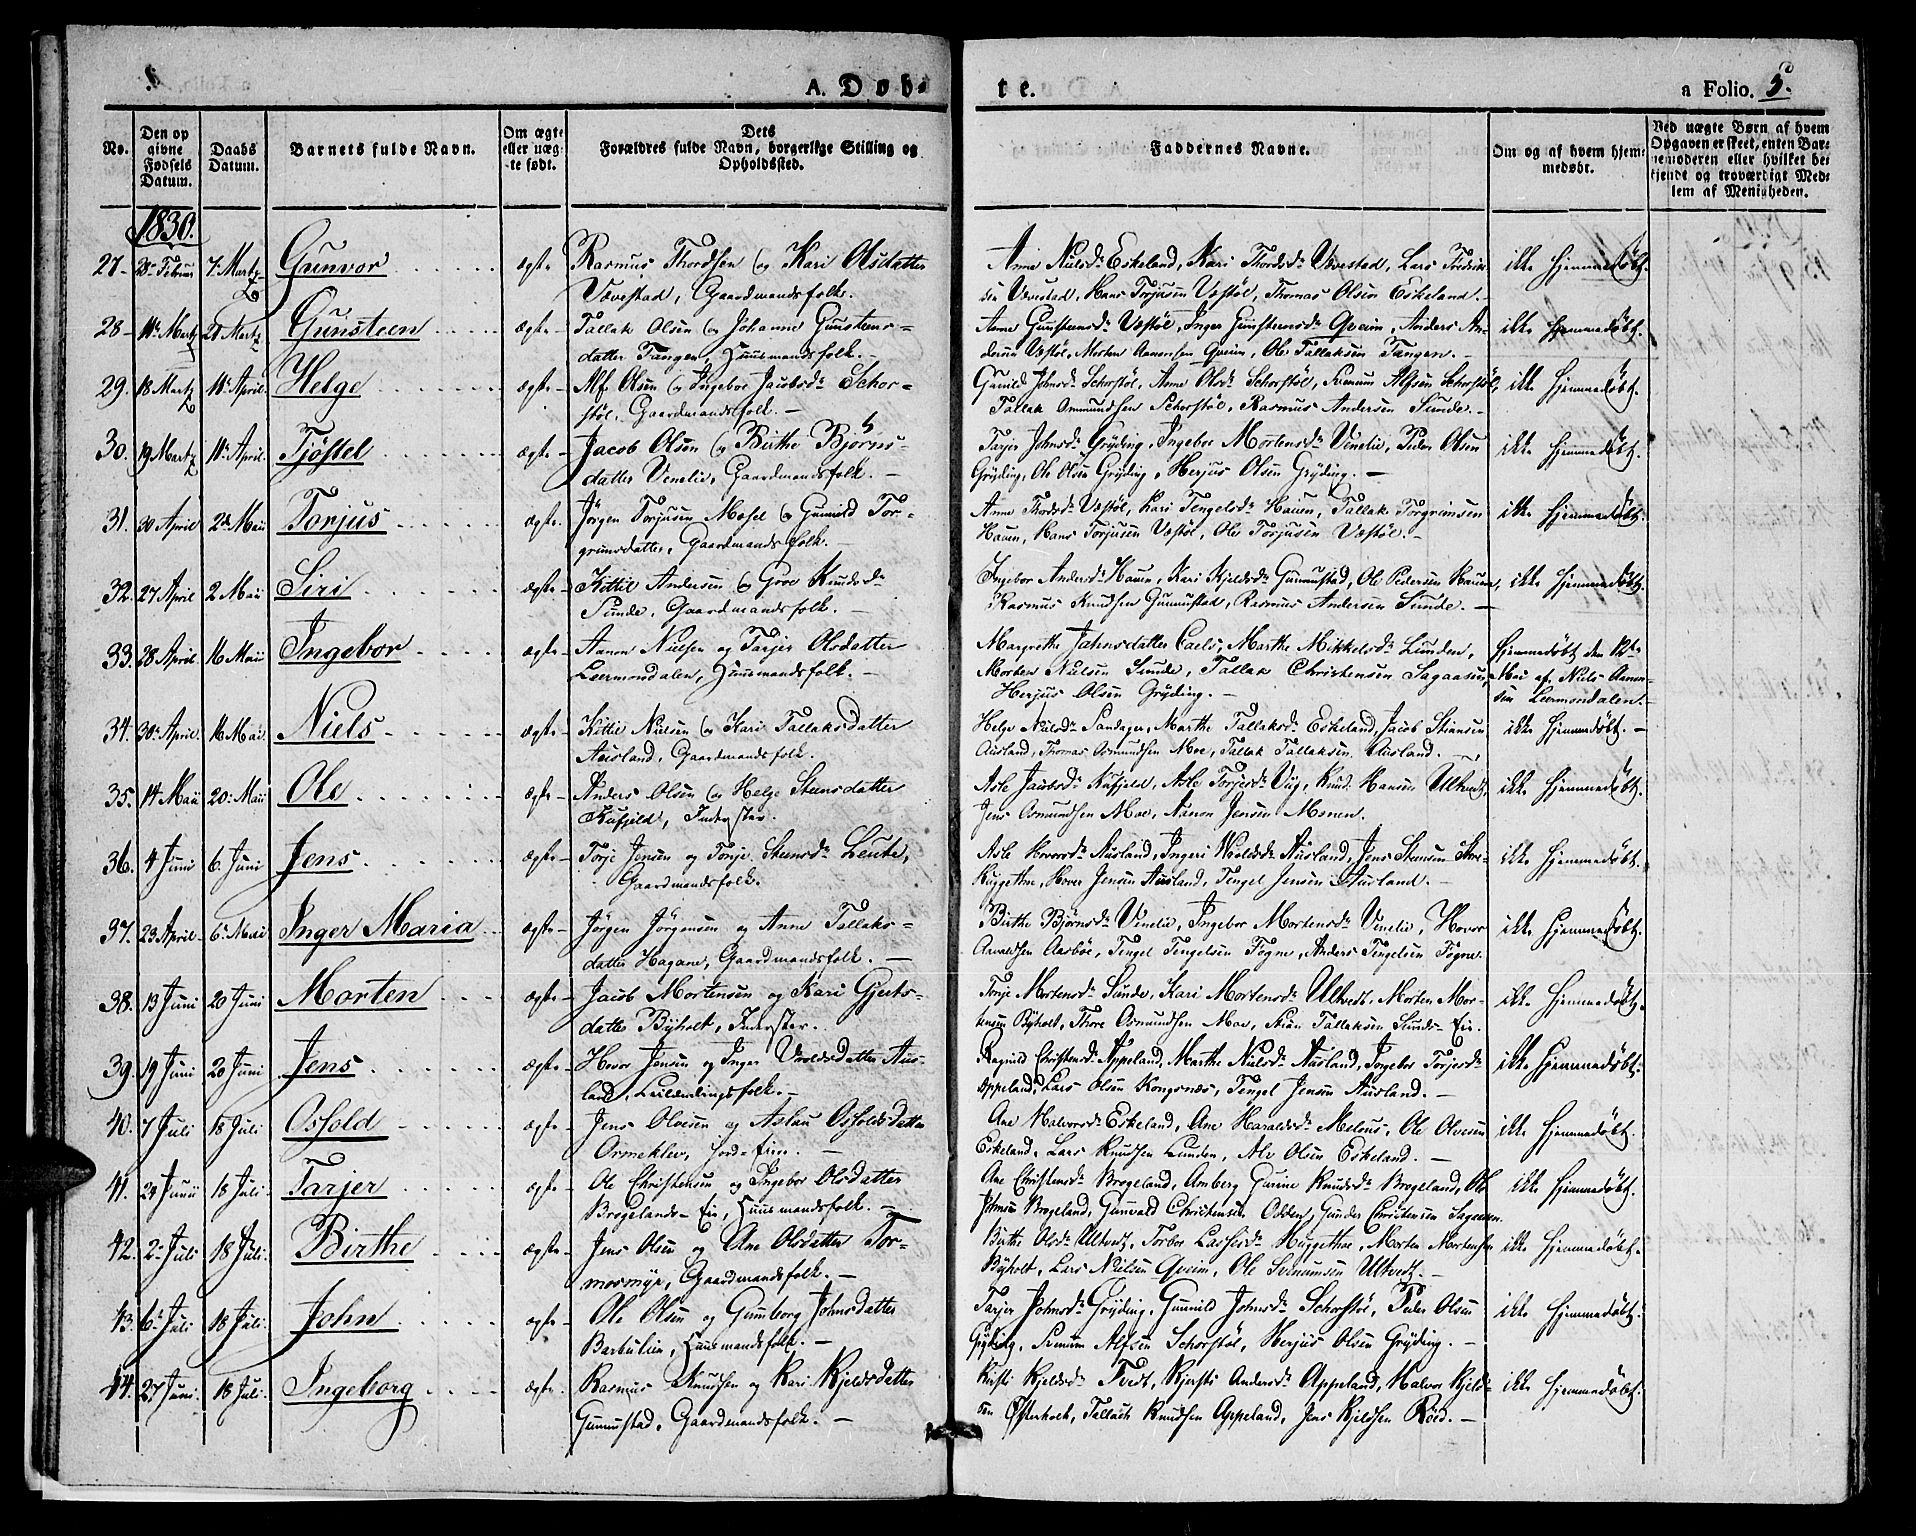 A. Døb-
te.
a Folio. 5.
No.
Den op
givne
Fødsels
Datum.
Daabs
Datum.
Barnets fulde Navn.
Om ægte
eller uæg-
te født.
Dets
Forældres fulde Navn, borgerlige Stilling og
Opholdssted.
Faddernes Navne.
Om og af hvem hjem-
medøbt.
Ved uægte Børn af hvem
Opgaven er skeet, enten Bar-
nemoderen eller hvilket be-
kjendt og troværdigt Med-
lem af Menigheden.
1830.
27 28 Februar 7 Martz Gunvor ægte Rasmus Thordsen og Kari Olsdatter
Vævestad, Gaardmandsfolk.
Anne Nielsd. Eskeland, Kari Thordsd. Vævestad, Lars
sen Vævestad, Hans Torjusen Væstöl, Thomas Olsen Eskeland.
ikke hjemmedöbt.
28 14 Martz 21 Martz Gunsteen ægte Tallak Olsen og Johanne Gunsteens-
datter Tangen, Huusmandsfolk.
Anne Gunsteensd. Væstöl, Inger Gunsteensd. Qveim, Anders An-
dersen Væstöl, Morten Aanonsen Qveim, Ole Tallaksen Tangen.
ikke hjemmedöbt.
29. 18 Martz 11 April Helge ægte Alf Olsen og Ingebor Jacobsd. Schor-
stöl, Gaardmandsfolk.
Gunild Johnsd. Schorstöl, Anne Olsd. Schorstöl, Svenum Alfsen Schorstöl,
Tallak Omundsen Schorstöl, Rasmus Andersen Sunde.
ikke hjemmedöbt.
30. 19 Martz 11 April Tjöstel ægte Jacob Olsen og Birthe Björns-
datter Venelie, Gaardmandsfolk.
Tarjer Johnsd. Gryding, Ingebor Mortensd. Venelie, Peder Olsen
Gryding, Ole Olsen Gryding, Herjus Olsen Gryding.
ikke hjemmedöbt.
31. 30 April 2 Maii Torjus ægte Jörgen Torjusen Mosel og Gunild Tor-
grimsdatter, Gaardmandsfolk.
Anne Thordsd. Væstöl, Kari Tengelsd. Hauen, Tallak Torgrimsen
Hauen, Hans Torjusen Væstöl, Ole Torjusen Væstöl.
ikke hjemmedöbt.
32. 27 April 2 Maii Siri ægte Kittil Andersen og Groe Knudsd.
Sunde, Gaardmandsfolk.
Ingebor Andersd. Hauen, Kari Kjeldsd. Gunnustad, Ole Pedersen Hauen,
Rasmus Knudsen Gunnustad, Rasmus Andersen Sunde.
ikke hjemmedöbt.
33. 28 April 16 Maii Ingebor ægte Aanon Nielsen og Tarjer Olsdatter
Leermondalen, Huusmandsfolk.
Margrethe Jahnsdatter Carls, Marthe Mikkelsd. Lunden,
Morten Nielsen Sunde, Tallak Christensen Sagaasen,
Herjus Olsen Gryding.
hjemmedöbt den 12te
Mai af Niels Aanon-
sen Leermondalen.
34. 30 April 16 Mai Niels ægte Kittil Nielsen og Kari Tallaksdatter
Ausland, Gaardmandsfolk.
Helge Nielsd. Sandager, Marthe Tallaksd. Eskeland, Jacob Steensen
Ausland, Thomas Osmundsen Moe, Tallak Tallaksen Ausland.
ikke hjemmedöbt.
35. 14 Maii 20 Maii Ole ægte Anders Olsen og Helge Steensdatter
Kufjeld, Inderster.
Asle Jacobsd. Kufjeld, Asle Torjersd. Viig, Knud Hansen Ultvedt,
Jens Osmundsen Moe, Aanon Jensen Monen.
ikke hjemmedöbt.
36. 4 Juni 6 Juni Jens ægte Torje Jensen og Torje Steensd. Leute,
Gaardmandsfolk.
Asle Hovorsd. Ausland, Ingeri Woldsd. Ausland, Jens Steensen
Huggethve, Hover Jensen Ausland, Tengel Jensen Ausland.
ikke hjemmedöbt.
37. 23 April 6 Mai Inger Maria ægte Jörgen Jörgensen og Anne Tallaks-
datter Hagane, Gaardmandsfolk.
Birthe Björnsd. Venelie, Ingebor Mortensd. Venelie, Hovor
Aavaldsen Aasböe, Tengel Tengelsen Fogne, Anders Tengelsen Fogne.
ikke hjemmedöbt.
38. 13 Juni 20 Juni Morten ægte Jacob Mortensen og Kari Gjerts-
datter Byholt, Inderster.
Torje Mortensd. Sunde, Kari Mortensd. Ultvedt, Morten Mor-
tensen Byholt, Thore Osmundsen Moe, Stian Tallaksen Sunds-Eie.
ikke hjemmedöbt.
39. 19 Juni 20 Juni Jens ægte Hovor Jensen og Inger Voroldsdatter Aus-
land, Leilendingsfolk.
Ragnild Christensd. Appeland, Marthe Nielsd. Ausland, Ingebor Torjersd.
Appeland, Lars Olsen Kongsnæs, Tengel Jensen Ausland.
ikke hjemmedöbt.
40. 7 Juli 18 Juli Osfold ægte Jens Olvesen og Aslau Osfoldsdatter
Ormeklev, Jord-Eiere.
Ane Halvorsd. Eskeland, Ane Haraldsd. Melaus, Ole Olvesen
Eskeland, Lars Knudsen Lunden, Alv Olsen Eskeland.
ikke hjemmedöbt.
41. 24 Juni 18 Juli Tarjer ægte Ole Christensen og Ingebor Olsdatter
Brogelands-Eie, Huusmandsfolk.
Ane Christensd. Brogeland, Amberg Gurine Knudsd. Brogeland, Ole
Johnsen Brogeland, Gunvald Christensen Odden, Gunder Christensen Sagaasen.
ikke hjemmedöbt.
42. 2 Juli 18 Juli Birthe ægte Jens Olsen og Ane Olsdatter Tor-
mosmyr, Gaardmandsfolk.
Birthe Olsd. Ultvedt, Torbor Lassesd. Huggethve, Morten Mortensen
Byholt, Lars Nielsen Qveim, Ole Svenumsen Ultvedt.
ikke hjemmedöbt.
43. 6 Juli 18 Juli John ægte Ole Olsen og Gunborg Johnsdatter
Barbulien, Huusmandsfolk.
Tarjer Johnsd. Gryding, Gunnild Johnsd. Schorstöl, Peder Olsen
Gryding, Svenum Alfsen Schorstöl, Herjus Olsen Gryding.
ikke hjemmedöbt.
44. 27 Juni 18 Juli Ingeborg ægte Rasmus Knudsen og Kari Kjeldsdatter
Gunnustad, Gaardmandsfolk.
Kirsti Kjeldsd. Tvedt, Kjersti Andersd. Appeland, Halvor Kjeld-
sen Österholt, Tallach Knudsen Appeland, Jens Kjeldsen Röed.
ikke hjemmedöbt.